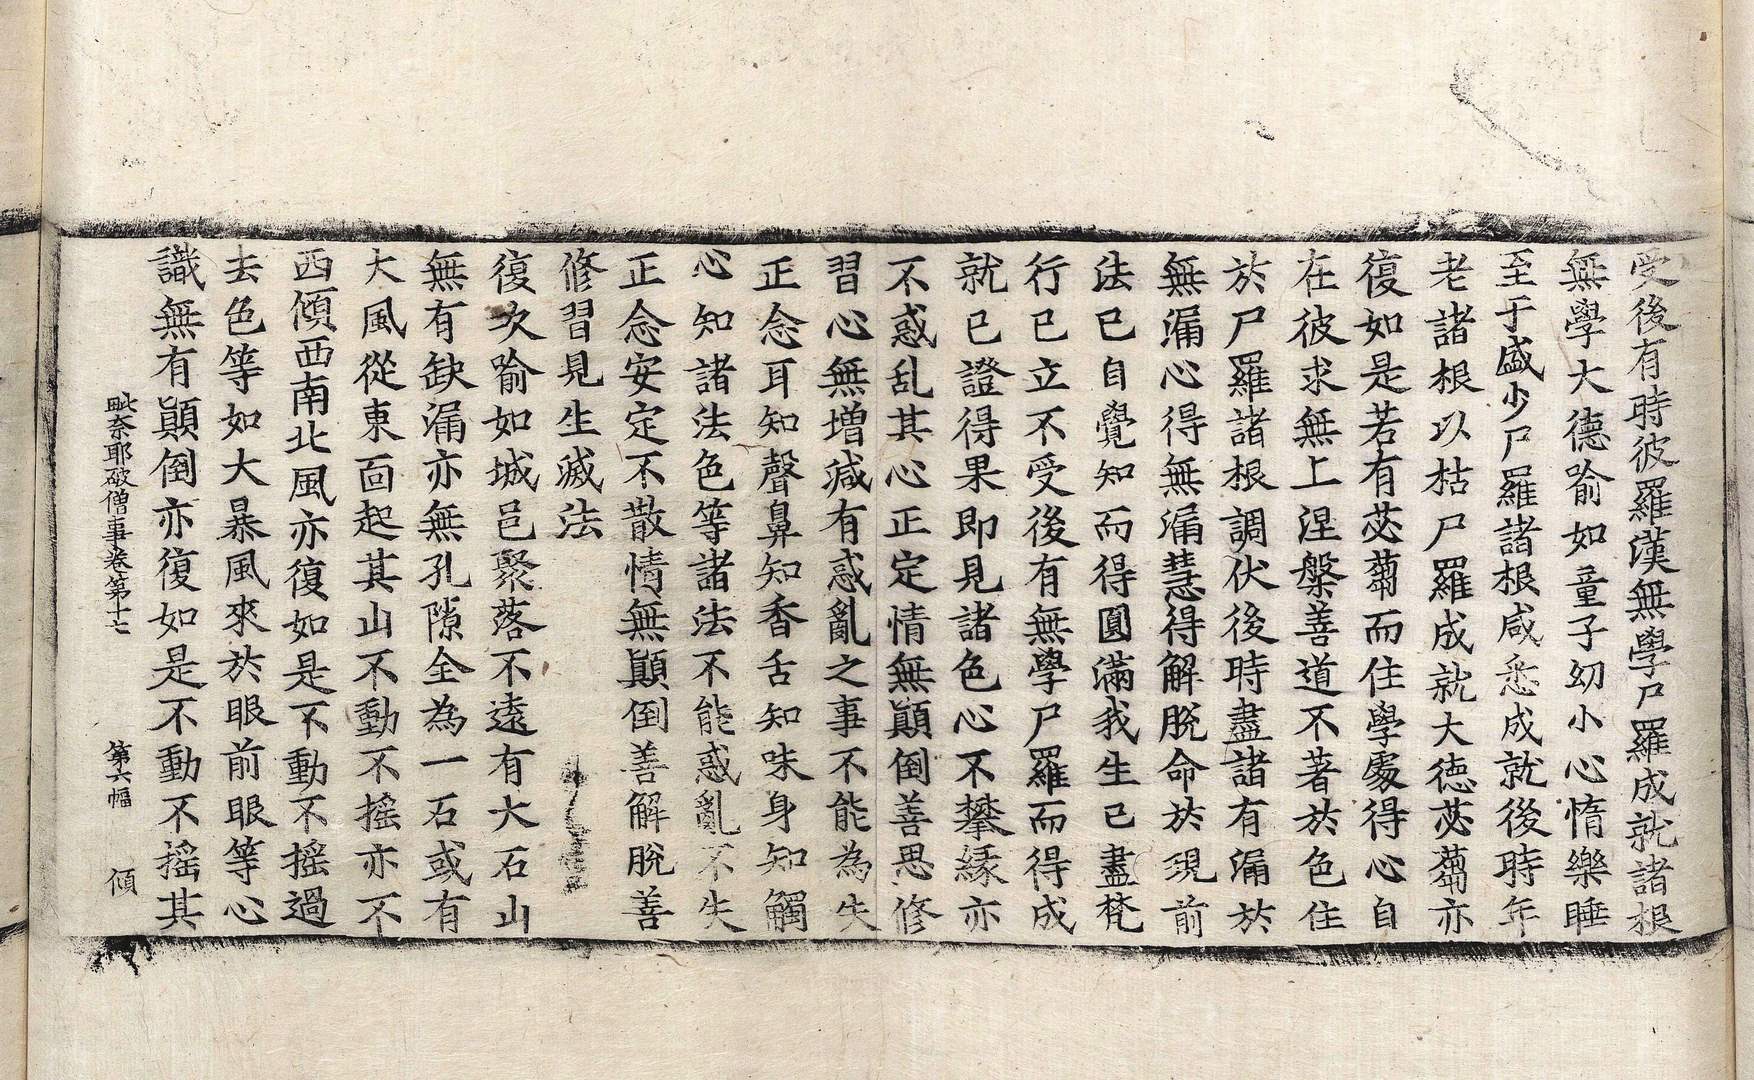 受後有時彼羅漢無學尸羅成就諸根
無學大德喻如童子幼小心惰樂睡
至于盛少尸羅諸根咸悉成就後時年
老諸根以枯尸羅成就大德苾蒭亦
復如是若有苾蒭而住學處得心自
在彼求無上涅槃善道不著於色住
於尸羅諸根調伏後時盡諸有漏於
無漏心得無漏慧得解脫命於現前
法已自覺知而得圓滿我生已盡梵
行已立不受後有無學尸羅而得成
就已證得果即見諸色心不攀緣亦
不惑乱其心正定情無顛倒善思修
習心無増減有惑亂之事不能為失
正念耳知聲鼻知香舌知味身知觸
心知諸法色等諸法不能惑亂不失
正念安定不散情無顛倒善解脫善
修習見生滅法
復次喻如城邑聚落不遠有大石山
無有缺漏亦無孔隙全為一石或有
大風從東面起其山不動不揺亦不
西傾西南北風亦復如是不動不揺過
去色等如大暴風來於眼前眼等心
識無有顛倒亦復如是不動不揺其
毗奈耶破僧事卷第十七 第六幅 傾